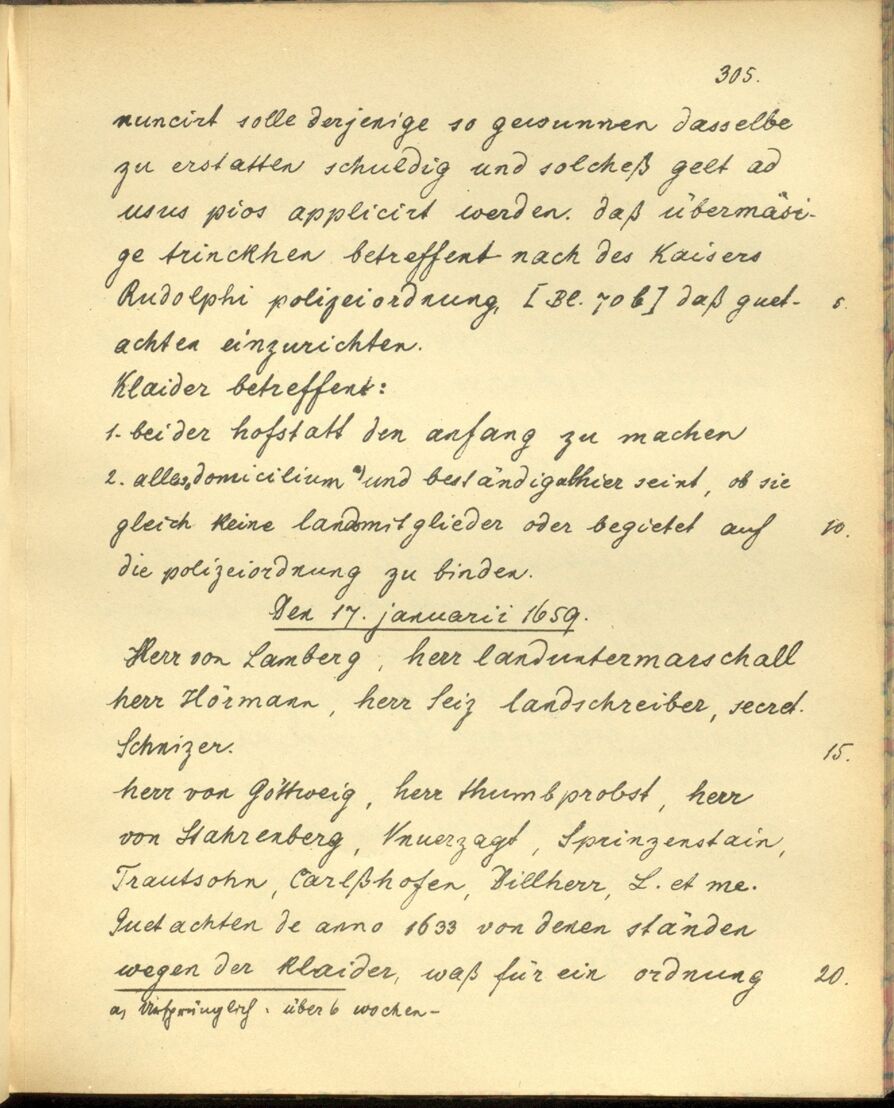 305.
nuncirt solle derjenige so gewunnen dasselbe
zu erstatten schuldig und solcheß gelt ad
usus pios applicirt werden. daß übermäsi-
ge trinckhen betreffent nach des Kaisers
Rudolphi polizeiordnung, [Bl. 70 b] daß guet- 5.
achten einzurichten.
Klaider betreffent:
1. bei der hofstatt den anfang zu machen
2. alles, domicilium a) und beständig alhier seint, ob sie
gleich keine landmitglieder oder begietet auf 10.
die polizeiordnung zu binden.
Den 17. januarii 1659.
Herr von Lamberg, herr landuntermarschall
herr Hörmann, herr Seiz landschreiber, secret.
Schnizer. 15.
herr von Göttweig, herr thumbprobst, herr
von Stahrenberg, Vnuerzagt, Sprinzenstain,
Trautsohn, Carlßhofen, Dillherr, L. et me.
Guetachten de anno 1633 von denen ständen
wegen der klaider, waß für ein ordnung 20.
a, Ursprünglich: über 6 wochen-